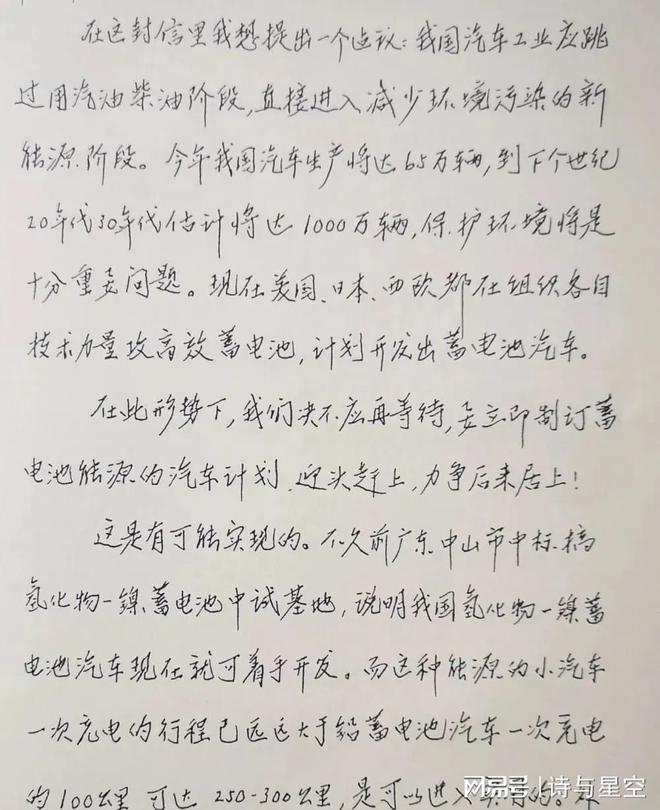 在这封信里我想提出一个建议：我国汽车工业应跳
过用汽油柴油阶段，直接进入减少环境污染的新
能源阶段。今年我国汽车生产将达65万辆，到下个世纪
20年代30年代估计将达1000万辆，保护环境将是
十分重要问题。现在美国、日本、西欧都在组织各自
技术力量攻高效蓄电池，计划开发出蓄电池汽车。
在此形势下，我们决不应再等待，要立即制订蓄
电池能源的汽车计划，迎头赶上，力争后来居上！
这是有可能实现的。不久前广东中山市中标搞
氢化物—镍蓄电池中试基地，说明我国氢化物—镍蓄
电池汽车现在就可着手开发。而这种能源的小汽车
一次充电的行程已远远大于铅蓄电池汽车一次充电
的100公里 可达 250-300公里，是可以进入
网易号 | 诗与星空